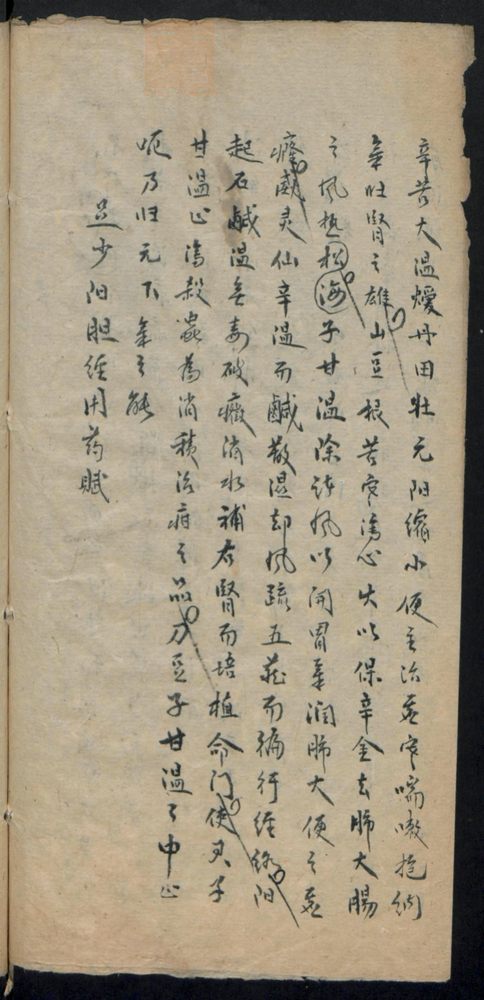 辛苦大温煖丹田壮元阳缩小便主治虚寒喘嗽
气旺肾之雄山豆根苦寒泻心火以保辛金去肺大腸
之风热松海子甘温除诸风以開胃气润肺大便之虚
威灵仙辛温而鹹散湿却风疏五藏而徧行经络阳
起石鹹温无毒破癥消水補右腎而培植命门使君子
甘温止泻殺蟲为消積治疳之品刀豆子甘温之中止
呃乃归元下气之能
足少阳胆经用药赋